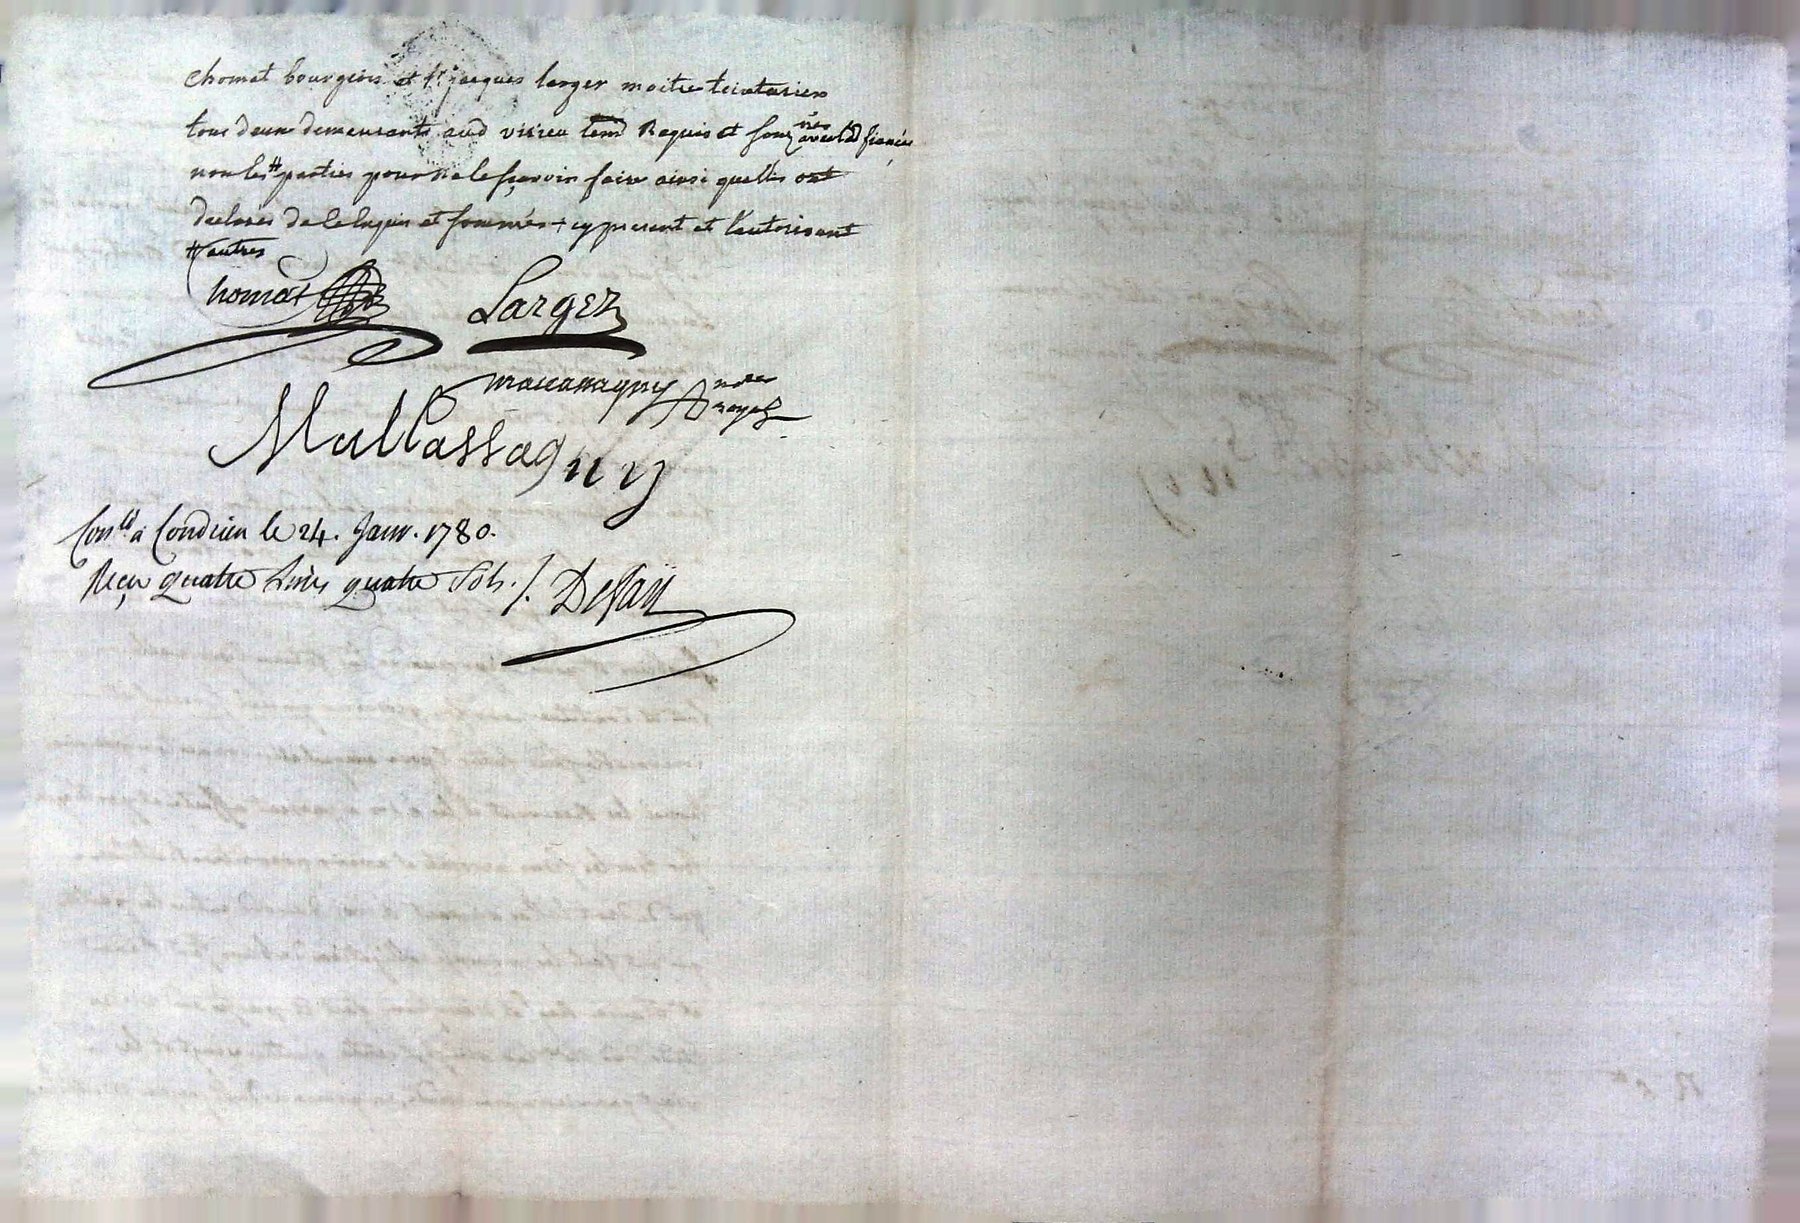 chomat bourgeois et sr jacques larger maitre teinturier
tous deux demeurants aud virieu tem Requis et sousnés avec led fiancés
non les # parties pour ne le sçavoir faire ainsi quelles ont
declarés de ce enquis et sommés + cy present et l'autorisant
# autres
Chomat Larger
maccassagny notre
royal
Mullassagny
Conlé a Condrieu le 24. Janv. 1780.
Reçu Quatre Livres quatre Sols ./. Defaÿ